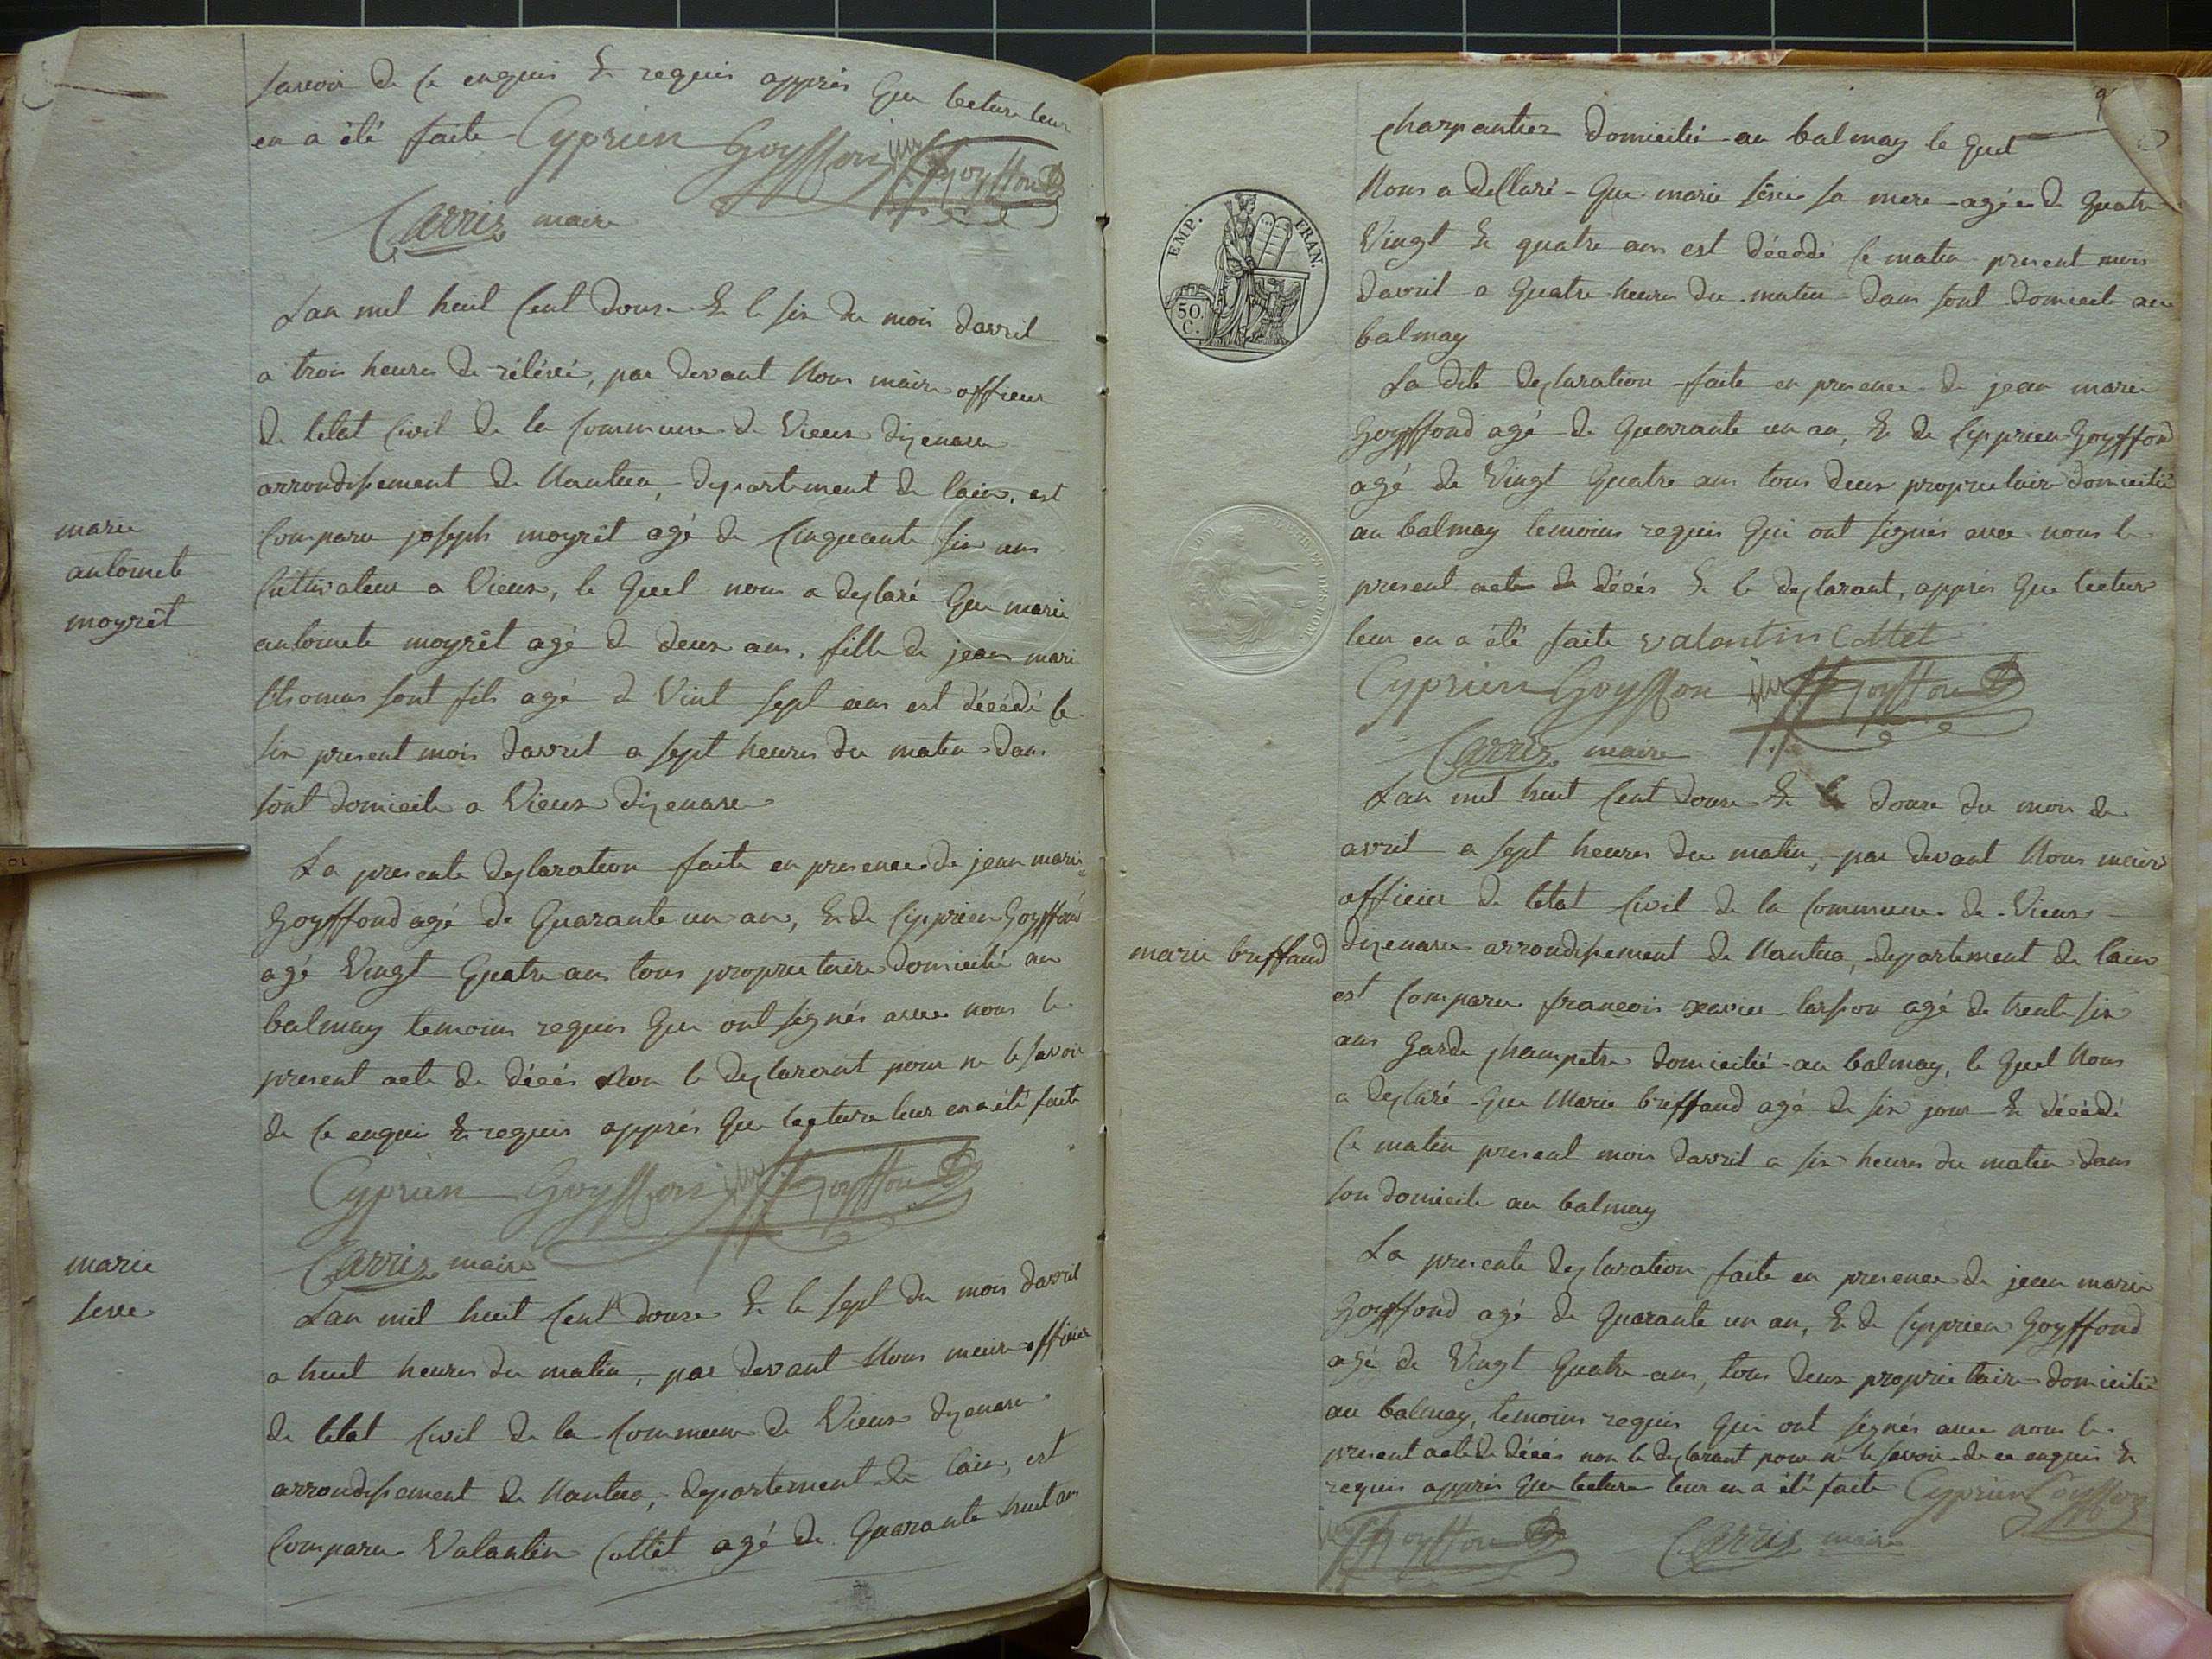 savoir de ce enquis & requis apprés que lecture leur
en a été faite Cyprien Goyffon Goyffon
Carrier maire
Lan mil huit cent douse & le six du mois davril
a trois heures de rélévé, par devant Nous maire officier
de létat Civil de la Commune de Vieux dizenave
arrondissement de Nantua, département de lain, est
Comparu joseph moyrêt agé de Cinquante six ans
Cultivateur a Vieux, le quel nous a desclaré que marie
marie
antoinete
moyrêt
antoinete moyrêt agé de deux ans, fille de jean marie
thomas sont fils agé d Vint sept ans est décédé le
six present mois davril a sept heures du matin dans
sont domicile a Vieux dizenave
La presente desclaration faite en presence de jean marie
Goyffond agé de Quarante un an, & de Cipprien Goyffond
agé Vingt Quatre ans tous proprietaire domicilié au
balmay temoins requis qui ont signés avec nous le
present acte de décés non le desclarant pour ne le savoir
de ce enquis & requis apprés que lecture leur en a été faite
Cyprien Goyffon Goyffon
Carrier maire
marie
sève
Lan mil huit Cent douse & le sept du mois davril
a huit heures du matin, par devant Nous maire officier
de létat Civil de la Commune de Vieux dizenave
arrondissement de Nantua, département de lain, est
Comparu Valantin Cottêt agé de Quarante huit ans
charpantier domicilié au balmay le quel
Nous a desclaré que marie sêve sa mere agée de quatre
Vingt & quatre ans est décédé ce matin present mois
davril a Quatre heures du matin dans sont domicile au
balmay
EMP. FRAN.
50 C.
La dite desclaration faite en presence de jean marie
Goyffond agé de Quarante un an, & de Cipprien Goyffond
agé de Vingt Quatre ans tous deux proprietaire domicilié
au balmay temoins requis qui ont signés avec nous le
present acte de décés & le desclarant, apprés que lecture
leur en a été faite valantin Cottet
Cyprien Goyffon Goyffon
Carrier maire
Lan mil huit Cent douse & le douse du mois de
avril a sept heures du matin, par devant Nous maire
officier de létat Civil de la Commune de Vieux
marie bruffaud
dizenave arrondissement de Nantua, département de lain
est Comparu françois xavier tarpon agé de trente six
ans Garde champetre domicilié au balmay, le quel Nous
a desclaré que Marie bruffaud agé de six jour & décédé
ce matin present mois davril a six heures du matin dans
son domicile au balmay
La presente desclaration faite en presence de jean marie
Goyffond agé de Quarante un an, & de Cypprien Goyffond
agé de Vingt Quatre ans, tous deux proprietaire domicilié
au balmay, temoins requis qui ont signés avec nous le
present acte de décés non le desclarant pour ne le savoir de ce enquis &
requis apprés que lecture leur en a été faite Cyprien Goyffon
Goyffon Carrier maire